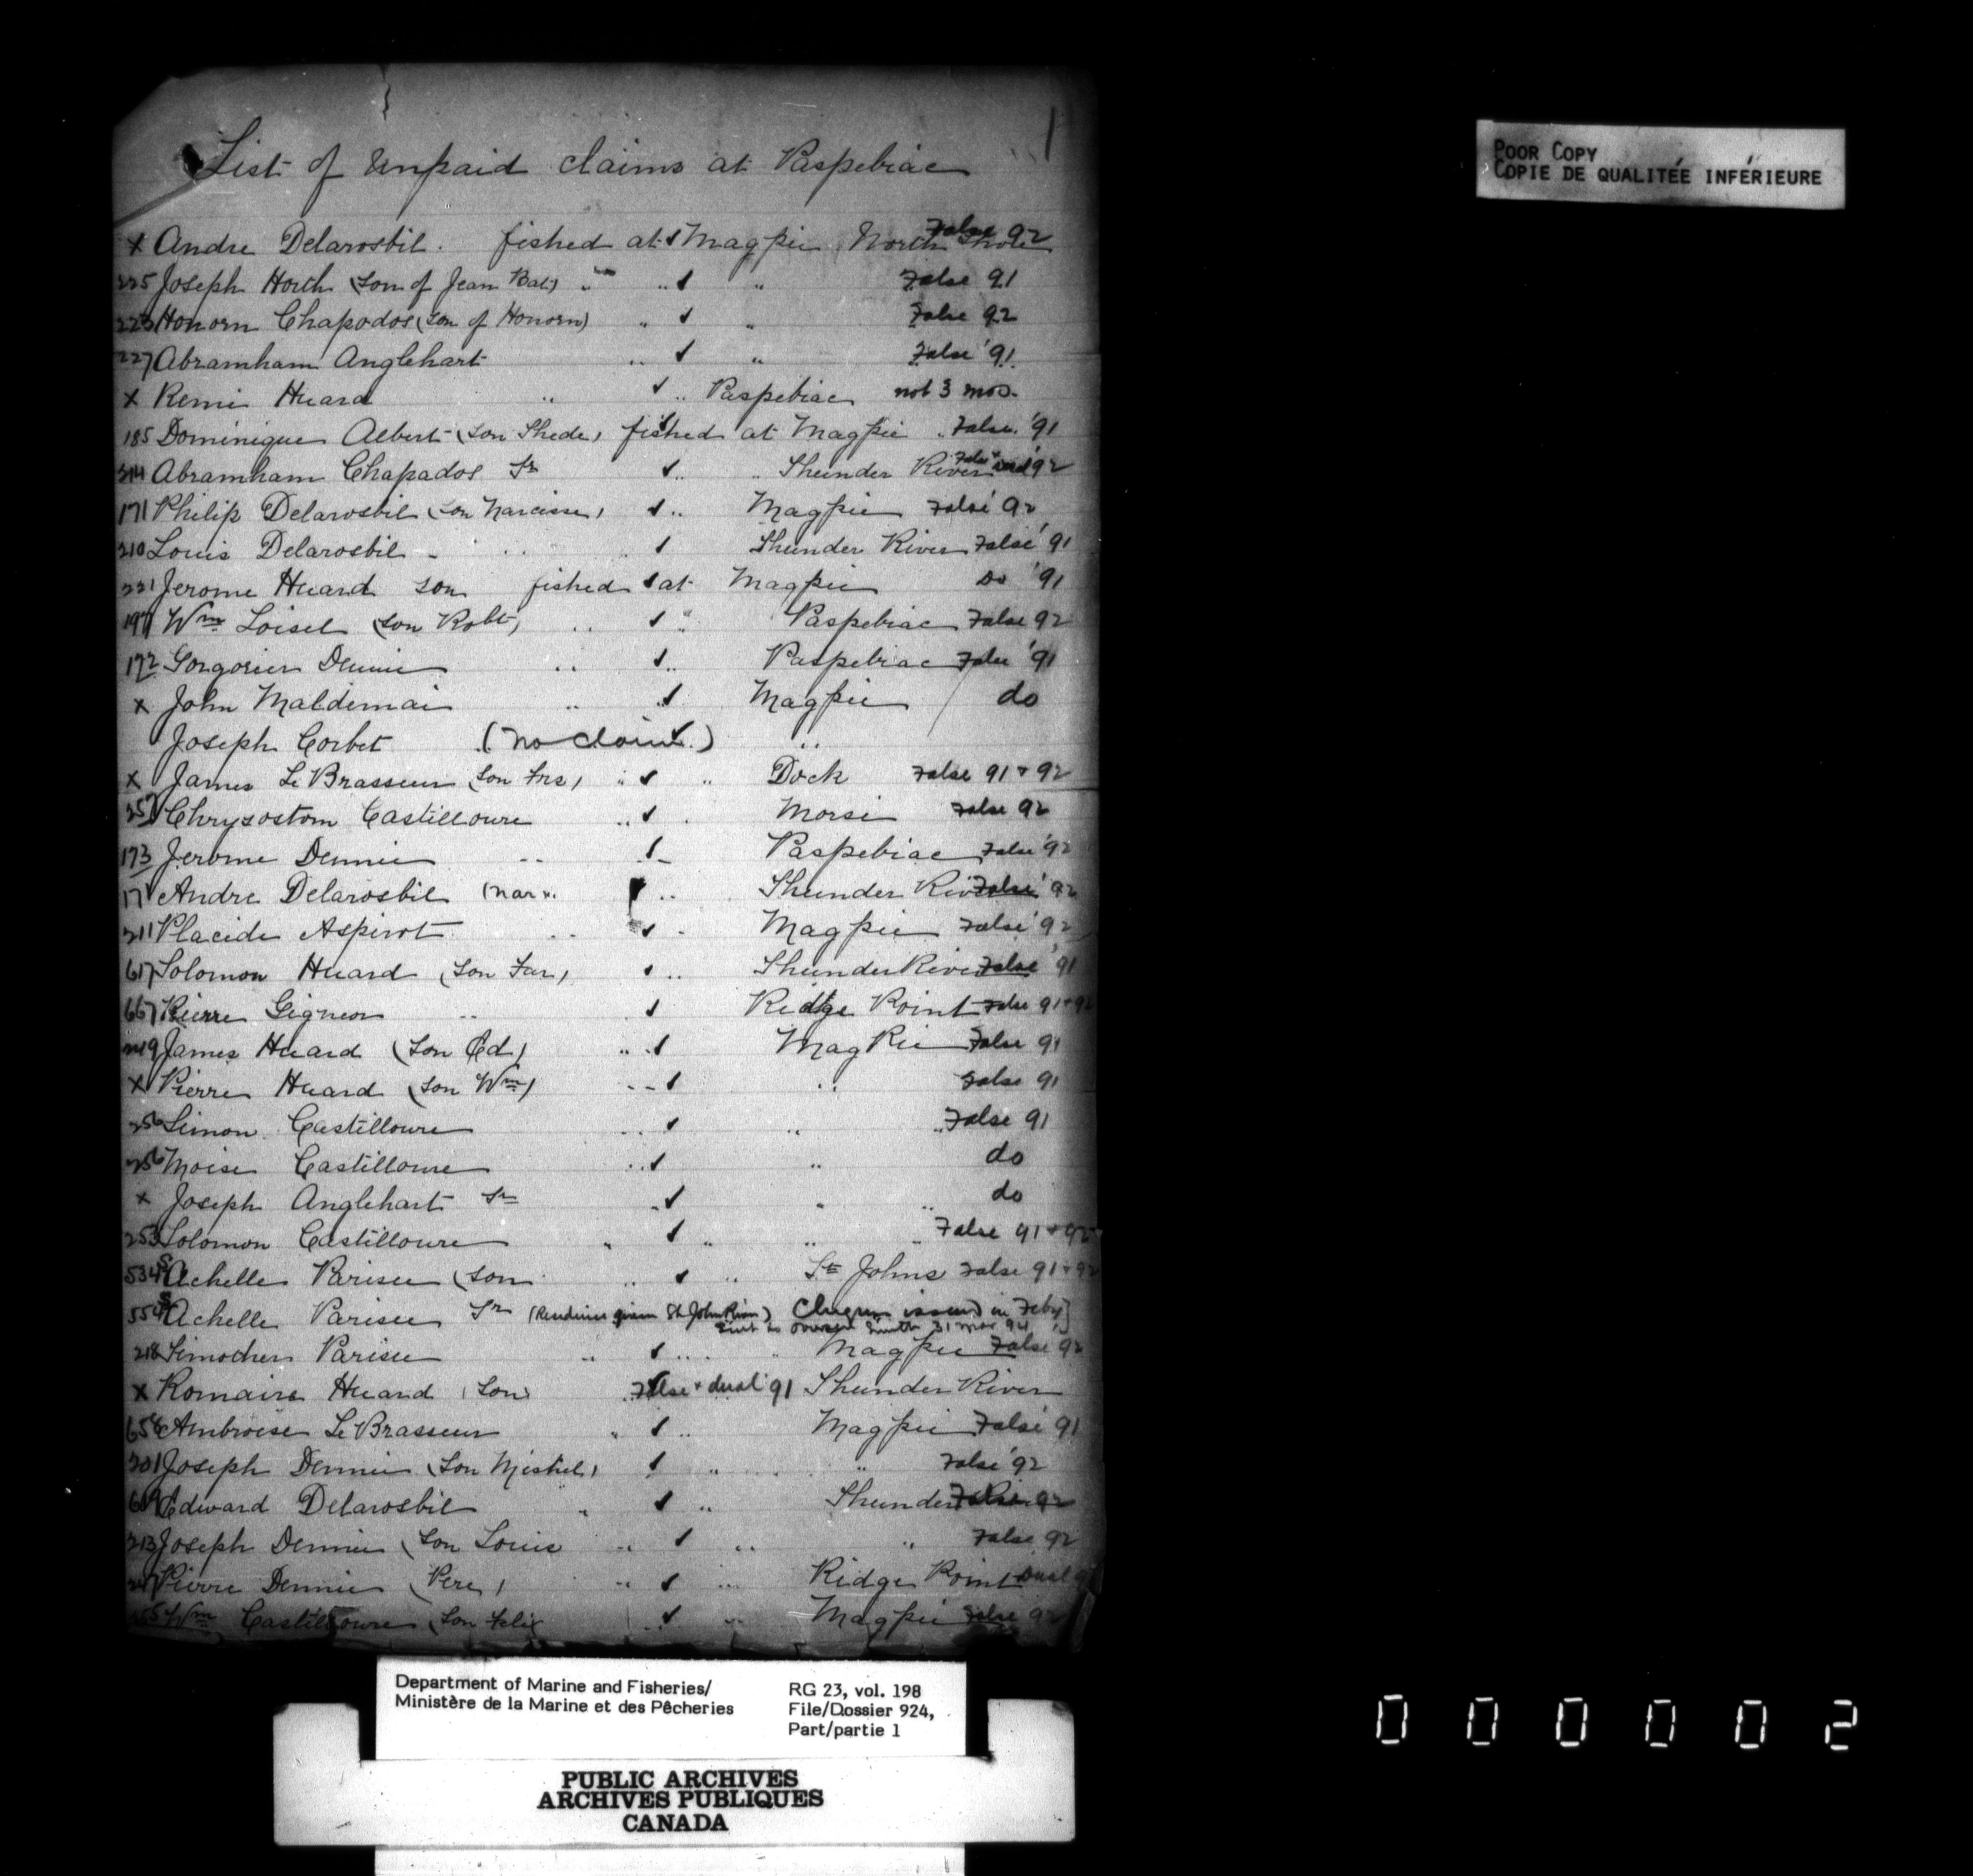 1
List of Unpaid claims at Paspebiac
POOR COPY
COPIE DE QUALITÉE INFÉRIEURE
x Andre Delarosbil. fished at Magpie North Shore False 92
225 Joseph Horth (Son of Jean Bat) " " " False 91
223 Honorn Chapados (Son of Honorn) " " False 92
227 Abramham Anglehart " " False '91
x Remi Huard " " Paspebiac not 3 mos.
185 Dominique Albert (Son Thede) fished at Magpie False '91
314 Abramham Chapados Sr " " Thunder River False + dual '92
171 Philip Delarosbil (Son Narcisse) " Magpie False '92
210 Louis Delarosbil " " Thunder River False '91
221 Jerome Huard Son fished at Magpie Do '91
197 Wm Loisel (Son Robt) " " Paspebiac False 92
172 Gorgorien Dennie " " Paspebiac False '91
x John Maldemai " " Magpie do
Joseph Corbet (No claim) "
x James Le Brasseur (Son Frs) " " Dock False 91 + 92
257 Chrysostom Castilloure " Morsie False 92
173 Jerome Dennie " " Paspebiac False '92
Andre Delarosbil (Nar " Thunder River False '92
211 Placide Aspirot " " Magpie False '92
617 Solomon Huard (Son Far) " Thunder River False '91
667 Pierre Gigneon " " Ridge Point False 91 + 92
James Huard (Son Ed) " Magpie False 91
x Pierre Huard (Son Wm) " " False 91
256 Simon Castilloure " " " False 91
256 Moise Castilloure " " do
x Joseph Anglehart Sr " " " do
253 Solomon Castilloure " " " " False 91 + 92
534 Achelle Parisee (Son " " St Johns False 91 + 92
554 Achelle Parisee Sr (Residence given St John River) Cheque issued in Feby]
sent to Smith 31 Mar 94
218 Simochen Parisee " " " Magpie False 92
x Romaire Huard (Son) False + dual '91 Thunder River
658 Ambroise Le Brasseur " " Magpie False '91
201 Joseph Dennie (Son Mishel) " " False '92
Edward Delarosbil " " Thunder River False 92
213 Joseph Dennie (Son Louis " " " False 92
Pierre Dennie (Pere) " " Ridge Point Dual
Wm Castilloure (Son Felix " " Magpie False 92
Department of Marine and Fisheries/
Ministère de la Marine et des Pêcheries
RG 23, vol. 198
File/Dossier 924,
Part/partie 1
PUBLIC ARCHIVES
ARCHIVES PUBLIQUES
CANADA
000002